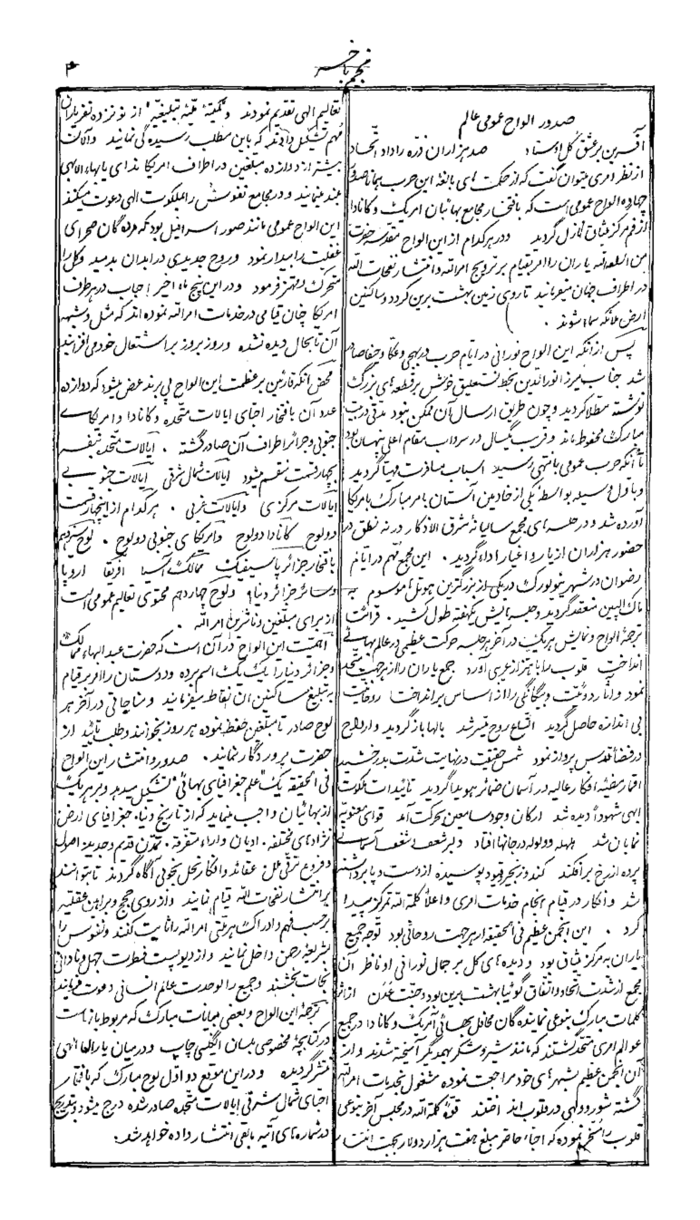 نجم باختر
۳
صدور الواح عمومی عالم
آفرین بر عشق کل اوستاد صد هزاران ذره را داد اتحاد
از نظر امری میتوان گفت که از حکمت های بالغهٔ این حرب همانا صدور
چهارده الواح عمومی است که بافتخار مجامع بهائیان امریک و کانادا
از قلم مرکز میثاق نازل گردید و در هر کدام از این الواح مقدسه حضرت
من اراده الله یاران را امر بقیام بر ترویج امرالله و انتشار نفحات الله
در اطراف جهان میفرمایند تا روی زمین بهشت برین گردد و ساکنین
ارض ملائکه سماء شوند .
پس از آنکه این الواح نورانی در ایام حرب در بهجی و عکا و حیفا صادر
شد جناب میرزا نورالدین بخط نستعلیق خوش بر قطعه های بزرگ
نوشته مطلا کردند و چون طریق ارسال آن ممکن نبود مدتی در بیت
مبارک محفوظ ماند و قریب یکسال در سرداب مقام اعلی پنهان بود
تا آنکه حرب عمومی بانتهی رسید اسباب مسافرت مهیا گردید
و با اول وسیله بواسطهٔ یکی از خادمین آستان بامر مبارک بامریکا
آورده شد و در جلسه های مجمع سالیانهٔ مشرق الاذکار در نه نطق در
حضور هزاران از یار و اغیار اداء گردید . این مجمع مهم در ایام
رضوان در شهر نیویورک در یکی از بزرگترین هوتلها موسوم به
ماک الپین منعقد گردید و جلسه هایش یکهفته طول کشید . قرائت
ترجمهٔ الواح و نمایش هر یک در آخر هر جلسه حرکت عظیمی در عالم بهائی
انداخت قلوب را باهتزاز غریبی آورد جمع یاران را از هر جهت متحد
نمود و آثار دوئیت و بیگانگی را از اساس برانداخت روحانیت
بی اندازه حاصل گردید اقناع روح میسر شد بالها باز گردید و ارواح
در فضاء قدس پرواز نمود شمس حقیقت در نهایت شدت بدرخشید
اقمار مضیئه افکار عالیه در آسمان ضمائر هویدا گردید تائیدات ملکوت
ابهی شهوداً دیده شد ارکان وجود سامعین بحرکت آمد قوای معنویه
نمایان شد هلهله و ولوله در جانها افتاد دلبر شعف و شغف آسمانی
پرده از رخ برافکند کند و زنجیر قیود پوسیده از دست و پا برداشته
شد و افکار در قیام انجام خدمات امری و اعلاء کلمة الله تمرکز پیدا
کرد . این انجمن عظیم فی الحقیقه از هر جهت روحانی بود توجه جمیع
یاران به مرکز میثاق بود و دیده های کل بر جمال نورانی او ناظر آن
مجمع از شدت اتحاد و اتفاق گویا بهشت برین بود و جنت عدن از اثر
کلمات مبارک بنوعی نماینده گان محافل بهائی امریک و کانادا در جمیع
عوالم امری متحد گشتند که مانند شیر و شکر بهمدیگر آمیخته شدند و از
آن انجمن عظیم بشهرهای خود مراجعت نموده مشغول بخدمات امرالله
گشته شور و ولهی در قلوب انداختند قوهٔ کلمة الله در مجلس آخر بنوعی
قلوب را تسخیر نموده که احباء حاضر مبلغ هفت هزار دولار بجهت انتشار
تعالیم الهی تقدیم نمودند و کمیتهٔ تبلیغیه از نوزده نفر یاران
مهم تشکیل دادند که باین مطلب رسیده گی نمایند و الآن
بیشتر از دوازده مبلغین در اطراف امریکا ندای یا بهاء الابهی
بلند مینمایند و در مجامع نفوس را بملکوت الهی دعوت میکنند
این الواح عمومی مانند صور اسرافیل بود که مرده گان صحرای
غفلت را بیدار نمود و روح جدیدی در ابدان بدمید و کل را
متحرک و مهتز فرمود و در این پنج ماه اخیر احباب در هر طرف
امریکا چنان قیامی در خدمات امرالله نموده اند که مثل و شبه
آن تا بحال دیده نشده و روز بروز بر اشتعال خود می افزایند
محض آنکه قارئین بر عظمت این الواح پی برند عرض میشود که دوازده
عدد آن بافتخار احبای ایالات متحده و کانادا و امریکای
جنوبی و جزائر اطراف آن صادر گشته . ایالات متحده بنفسه
بچهار قسمت منقسم میشود ایالات شمال شرقی ایالات جنوبی
ایالات مرکزی و ایالات غربی . هر کدام از اینچهار قسمت
دو لوح کانادا دو لوح و امریکای جنوبی دو لوح . لوح سیزدهم
بافتخار جزائر پاسیفیک ممالک آسیا افریقا اروپا
و سائر جزائر دنیا و لوح چهاردهم محتوی تعالیم عمومی است
از برای مبلغین و ناشرین امرالله .
اهمیت این الواح در آن است که حضرت عبدالبهاء ممالک
و جزائر دنیا را یک یک اسم برده و دوستان را امر بر قیام
بر تبلیغ ساکنین آن نقاط میفرمایند و مناجاتی در آخر هر
لوح صادر تا مبلغین حفظ نموده هر روز بخوانند و طلب تائید از
حضرت پروردگار نمایند . صدور و انتشار این الواح
فی الحقیقه یک "علم جغرافیای بهائی" تشکیل میدهد و بر هر یک
از بهائیان واجب مینماید که از تاریخ دنیا . جغرافیای ارض
نژادهای مختلفه . ادیان و اراء متفرقه . تمدن قدیم و جدید . اصول
و فروع ترقی ملل . عقائد و افکار نحل بخوبی آگاه گردند تا بتوانند
بر انتشار نفحات الله قیام نمایند و از روی حجج و براهین عقلیه
بر حسب فهم و ادراک هر ملتی امرالله را ثابت کنند و نفوس را
بشریعهٔ رحمن داخل نمایند و از دیو پست فطرت جهل و نادانی
نجات بخشند و جمیع را بوحدت عالم انسانی دعوت فرمایند
ترجمهٔ این الواح و بعضی بیانات مبارک که مربوط بآنست
در کتابچهٔ مخصوصی بلسان انگلیسی چاپ و در میان یاران الهی
منتشر گردیده و در این موقع دو اول لوح مبارک که بافتخار
احبای شمال شرقی ایالات متحده صادر شده درج میشود و بتدریج
در شماره های آتیه بقیه انتشار داده خواهد شد .